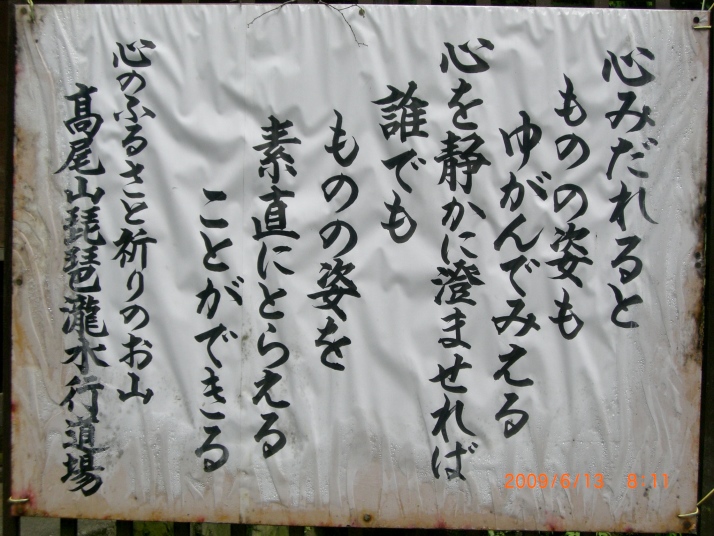 心みだれると
ものの姿も
ゆがんでみえる
心を静かに澄ませれば
誰でも
ものの姿を
素直にとらえる
ことができる
心のふるさと祈りのお山
髙尾山琵琶瀧水行道場
2009/6/13 8:11